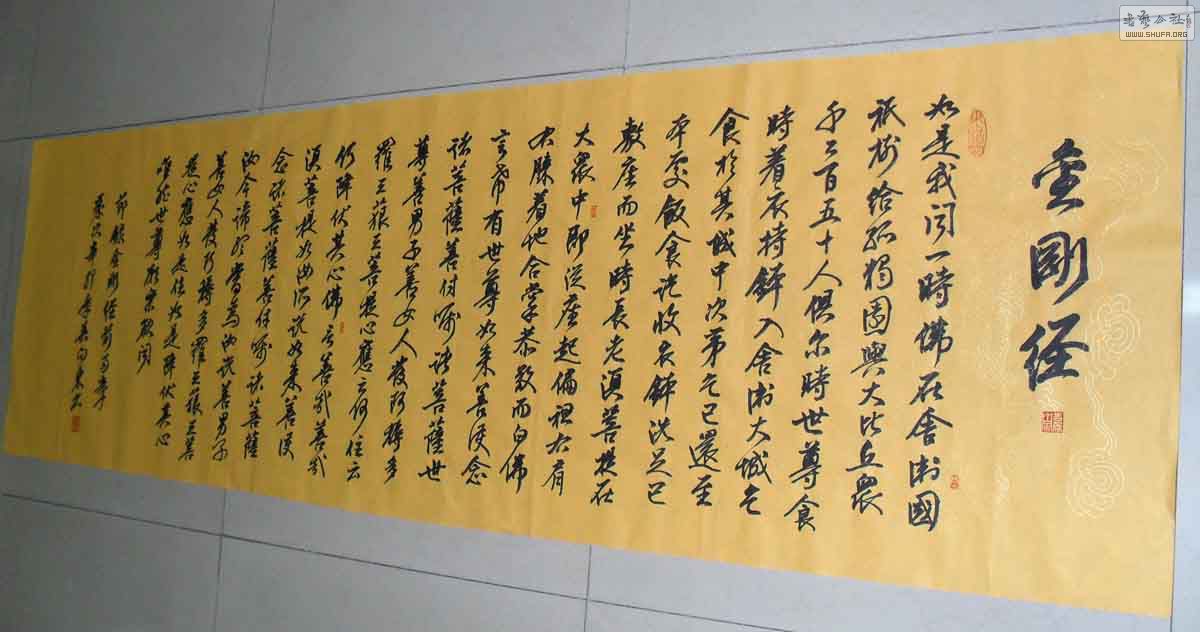 金剛经
如是我闻一時佛在舍衛國
祇树给孤獨園與大比丘眾
千二百五十人俱尔時世尊食
時着衣持鉢入舍衛大城乞
食於其城中次第乞已還至
本处飯食讫收衣鉢洗足已
敷座而坐時長老須菩提在
大眾中即從座起偏袒右肩
右膝着地合掌恭敬而白佛
言希有世尊如来善護念
诸菩薩善付嘱诸菩薩世
尊善男子善女人發阿耨多
羅三藐三菩提心應云何住云
何降伏其心佛言善哉善哉
須菩提如汝所说如来善護
念诸菩薩善付嘱诸菩薩
汝今谛听當為汝说善男子
善女人發阿耨多羅三藐三菩
提心應如是住如是降伏其心
唯然世尊願樂欲闻
節錄金剛经前两章
書藝公社
WWW.SHUFA.ORG